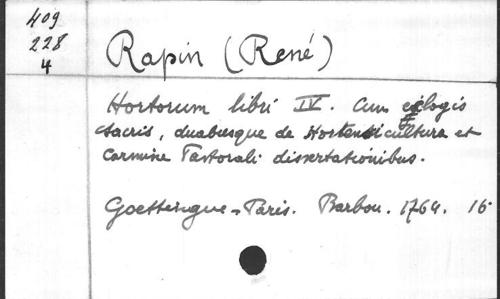 409
228
4
Rapin (René)
Hortorum libri IV. Cum eclogis
sacris, duabusque de Hortensi cultura et
Carmine Pastorali dissertationibus.
Goettingue - Paris. Barbou. 1764. 16